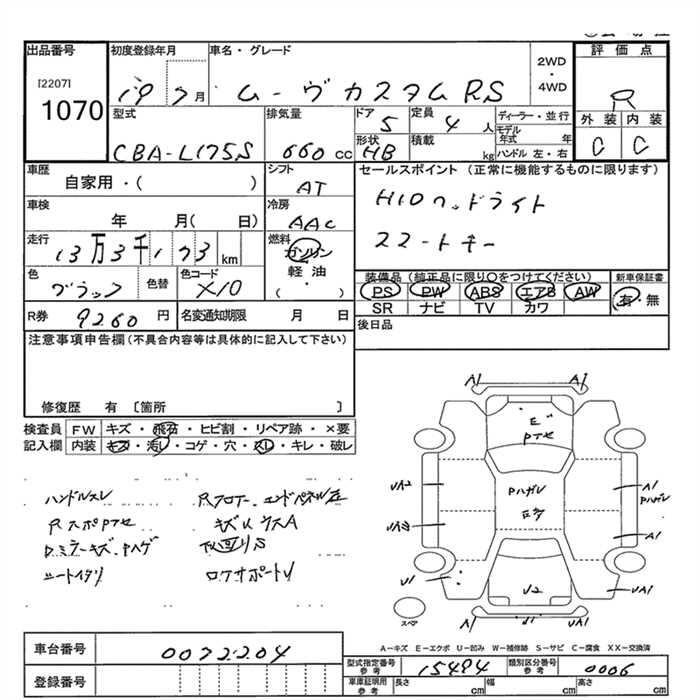 出品番号 初度登録年月 車名・グレード 2WD・4WD 評価点
[2207] 1070
19 7月 ムーヴカスタムRS R
型式 排気量 ドア 5 定員 4人 ディーラー・並行 外装 内装
モデル年式 年
CBA-L175S 660cc 形状 HB 積載 kg ハンドル 左・右 C C
車歴 シフト セールスポイント (正常に機能するものに限ります)
自家用・( ) AT
車検 冷房 HIDヘッドライト
年 月( 日) AAC
走行 燃料 2スートキー
13万3千173km ガソリン
色 色替 色コード 軽油 装備品(純正品に限り○をつけてください) 新車保証書
ブラック X10 ( ・ ) PS PW ABS エアB AW 有・無
SR ナビ TV カワ
R券 9260円 名変通知期限 月 日 後日品
注意事項申告欄(不具合内容等は具体的に記入して下さい)
修復歴 有 〔箇所 〕
検査員 FW キズ・飛石・ヒビ割・リペア跡・×要
記入欄 内装 キズ・汚レ・コゲ・穴・スレ・キレ・破レ
ハンドルスレ
RスポPアセ キズUウスA
DミラーキズPハゲ 下回りS
シートイタリ ロケサポートU
A1 A1
E
Pアセ
UA2 Pハガレ A1 Pハゲレ
UA3 A1
U1 U2 UA1
スペア
A-キズ E-エクボ U-凹み W-補修跡 S-サビ C-腐食 XX-交換済
車台番号 0072204
型式指定番号 参考 15494 類別区分番号 参考 0006
登録番号 車庫証明用 参考 長さ cm 幅 cm 高さ cm